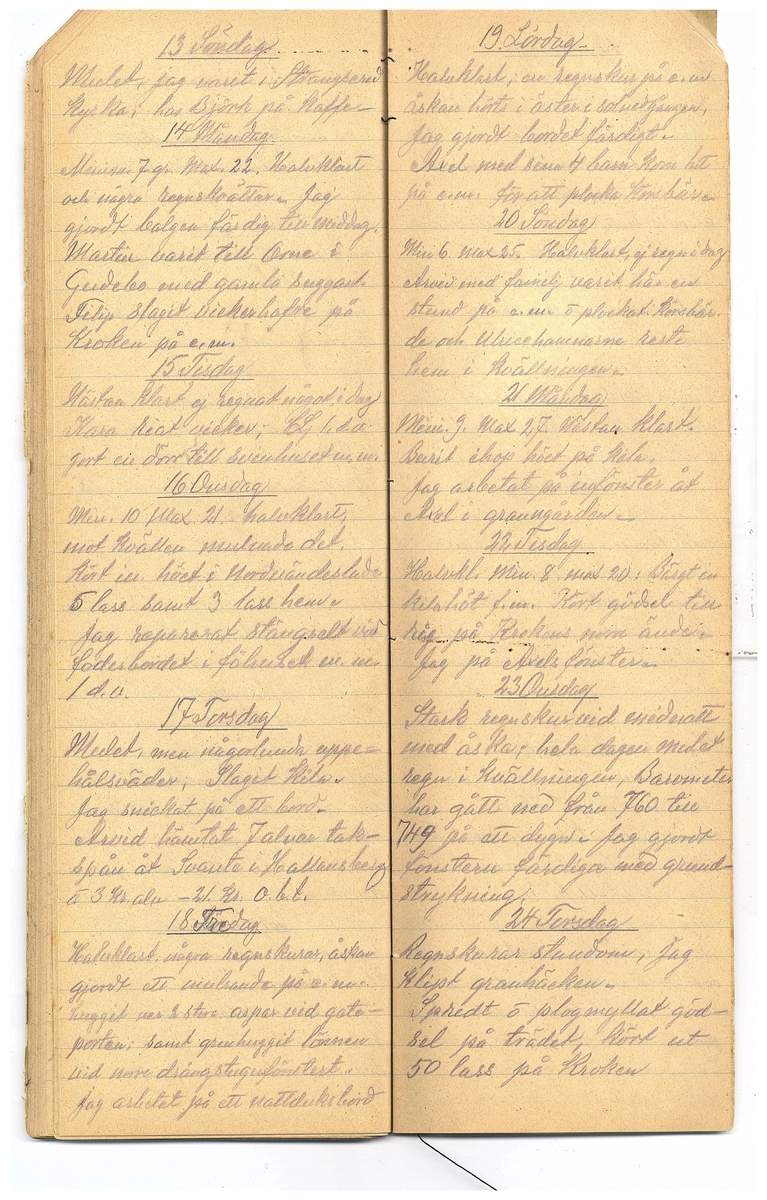 13 Söndag
Mulet, jag varit i Strängsered
Kyrka, hos Björk på Kaffe
14 Måndag
Minim. 7 gr. Max. 22. Halvklart
och några regnskvättar. Jag
gjordt balgen färdig till middag.
Martin varit till Orne i
Gudebo med gamla suggan.
Filip slaget vickerhafre på
Kroken på e.m.
15 Tisdag
Nästan klart ej regnat något i dag
Kara vicker; 1 d.o.
gort en dörr till svinhuset m.m.
16 Onsdag
Min. 10 Max. 21. halvklart,
mot kvällen mulnade det.
Kört in höet i
5 lass samt 3 lass hem.
Jag reparerat stängselt vid
foderbordet i fähuset m.m.
1 d.o.
17 Torsdag
Mulet, men någorlunda uppe=
hålsväder; Slaget Kila.
Jag snickat på ett bord.
Arvid hämtat 7 alnar tak-
spån åt Svante i Hallansberg
à 3 Kr. aln - 21. Kr. o.b.t.
18 Fredag
Halvklart. några regnskurar, åskan
gjordt ett mulrande på e.m.
huggit ner 2 stora aspar vid gate-
porten; samt lönnen
vid norre drängstugufönstert.
jag arbetat på ett nattduksbord
19. Lördag
Halvklart; en regnskur på e.m
åskan hörts i öster i solnedgången,
Jag gjordt bordet färdigt.
Axel med sina 4 barn kom hit
på e.m. för att plocka Körsbär.
20 Söndag
Min 6. max 25. Halvklart, ej regn i dag
Arvid med familj varit här en
stund på e.m. o plockat Körsbär.
de och Ulricehamnarne reste
hem i kvällningen.
21 Måndag
Min. 9. Max 27. Nästan klart.
Burit ihop höet på Kila.
Jag arbetat på infönster åt
Axel i granngården.
22 Tisdag
Halvkl. Min. 8. max 20: Bärgt in
kilahöt f.m. Kört gödsel till
råg på Krokens norr ända.
Jag på Axels fönster.
23 Onsdag
Stark regnskur vid midnatt
med åska; hela dagen mulet
regn i kvällningen, Barometer
har gått ned från 760 till
749 på ett dygn. Jag gjordt
fönstern färdiga med grund-
strykning.
24 Torsdag
Regnskurar stundom, Jag
klipt granhäcken.
Spredt o plogmyllat göd-
sel på trädet, kört ut
50 lass på Kroken